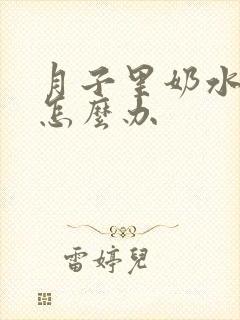 月子里奶水
怎麼办
雷婷兒